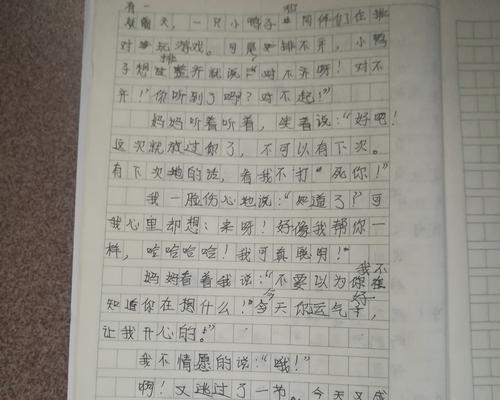 有一
天，一只小鸭子和同伴们在排
对玩游戏。可是排不齐，小鸭
子想排整齐就说："对不齐呀！对不
齐！你听到了吗？对不起！"
妈妈听着听着，笑着说："好吧！
这次就放过你了，不可以有下次。
有下次地的话，看我不打死你！"
我一脸伤心地说："知道了？"可
我心里却想：来呀！好像我帮你一
样，哈哈哈哈！我可真聪明！"
妈妈看着我说："不要以为我不
知道你在想什么！"今天你运气好，
让我开心的！"
我不情愿的说："哦！"
啊！又逃过了一节。今天又成